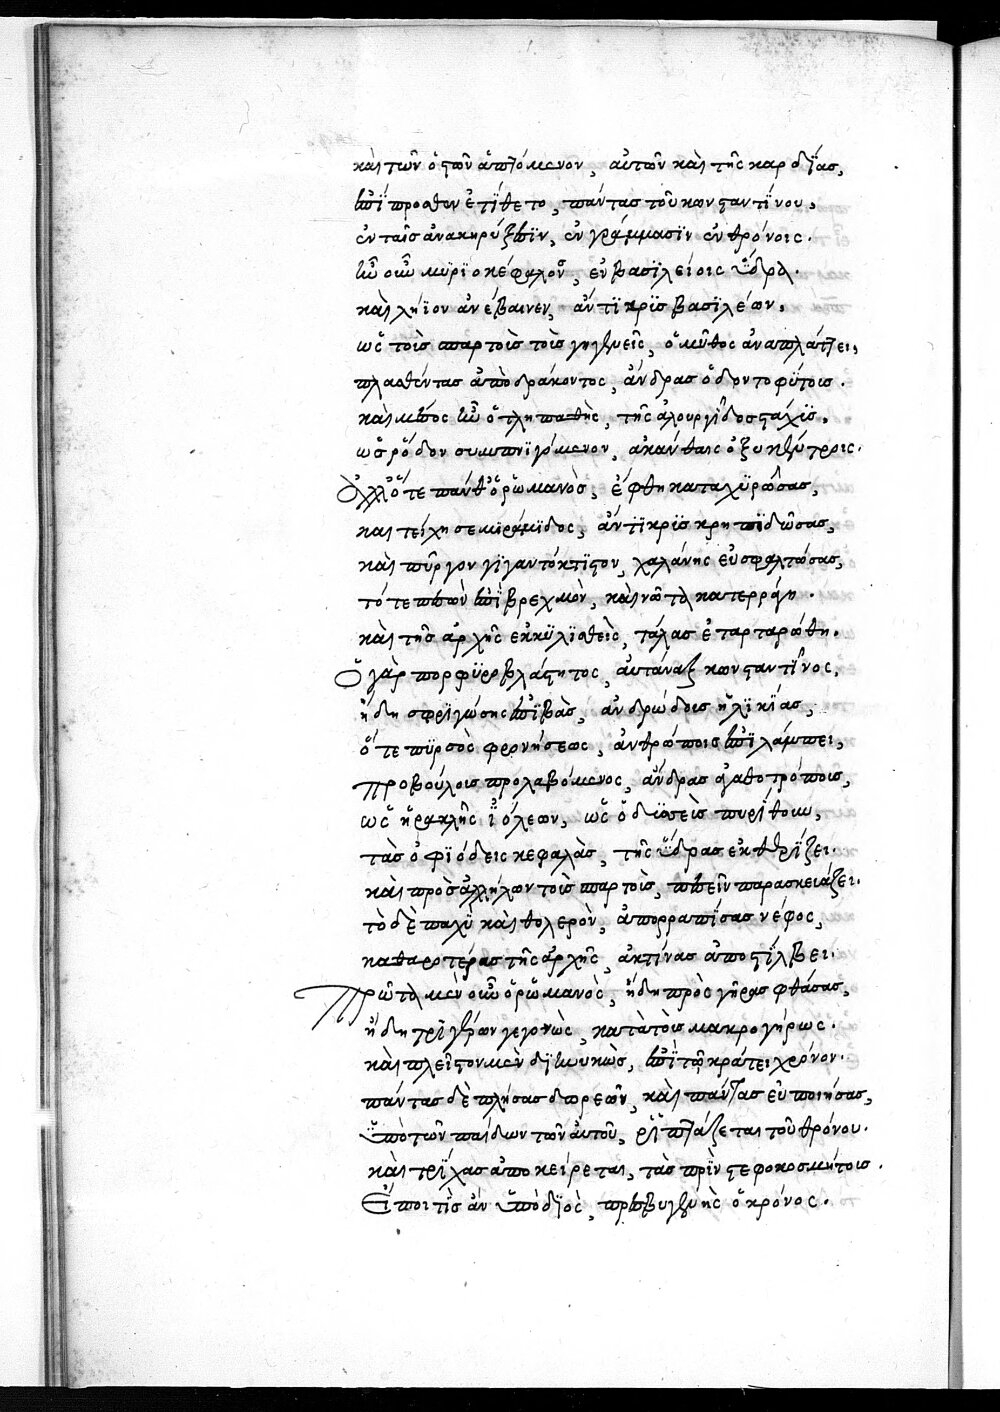 καὶ τῶν ὀστῶν ἁπτόμενον, αὐτῶν καὶ τῆς καρδίας,
ἐπίπροσθεν ἐτίθετο, πάντας τοῦ κωνσταντίνου,
ἐν ταῖς ἀνακηρύξεσιν, ἐν γράμμασιν ἐν θρόνοις.
ἦν οὖν μυριοκέφαλον, ἐν βασιλείοις ὕδρα.
καὶ λήϊον ἀνέβαινεν, ἀντικρὺς βασιλέων,
ὡς τοῖς σπαρτοῖς τοῖς γηγενεῖς, ὁ μῦθος ἀναπλάττει,
πλασθέντας ἀπὸ δράκοντος, ἄνδρας ὀδοντοφύτοις.
καὶ μέσος ἦν ὁ τλητπαθὴς, τῆς ἁλουργίδος στάχυς.
ὡς ῥόδον συμπνιγόμενον, ἀκάνθαις ὀξυκέντροις.
Ἀλλ' ὅτε πάνθ' ὁ ῥωμανὸς, ἔφθη καταχυρώσας,
καὶ τείχη σεμιράμιδος, ἀντικρὺς κρηπιδώσας,
καὶ πύργον γιγαντόκτιστον, χαλάνης εὐσφαλτώσας,
τότε πεσὼν ἐπὶ βρεχμὸν, καὶ νῶτα κατερράγη.
καὶ τῆς ἀρχῆς ἐκκυλισθεὶς, τάλας ἐταρταρώθη.
Ὁ γὰρ πορφυροβλάστητος, αὐτάναξ κωνσταντῖνος,
ἤδη σφριγώσης ἐπιβὰς, ἀνδρώδους ἡλικίας,
ὅτε πυρσὸς φρονήσεως, ἀνθρώποις ἐπιλάμπει,
προβούλοις προλαβόμενος, ἄνδρας ἀγαθοτρόποις,
ὡς ἡρακλῆς ἰόλεων, ὡς ὀδυσσεὺς πειρίθουν,
τὰς ὀφιώδεις κεφαλὰς, τῆς ὕδρας ἐκθερίζει.
καὶ πρὸς ἀλλήλων τοῖς σπαρτοῖς, πεσεῖν παρασκευάζει.
τὸ δὲ παχὺ καὶ θολερὸν, ἀπορραπίσας νέφος,
καθαρωτέρας τῆς ἀρχῆς, ἀκτίνας ἀποστίλβει.
Πρῶτα μὲν οὖν ὁ ῥωμανὸς, ἤδη πρὸς γῆρας φθάσας,
ἤδη τριγέρων γεγονὼς, κατὰ τοὺς μακρογήρως.
καὶ πλεῖστον μὲν διηνυκὼς, ἐπὶ τῷ κράτει χρόνον.
πάντας δὲ πλήσας δωρεῶν, καὶ πάντας εὐποιήσας,
ὑπὸ τῶν παίδων τῶν αὐτοῦ, ῥιπτάζεται τοῦ θρόνου.
καὶ τρίχας ἀποκείρεται, τὰς πρὶν στεφοκοσμήτους.
Εἴποι τις ἂν ὑπὸ διὸς, πρεσβυγενὴς ὁ κρόνος.